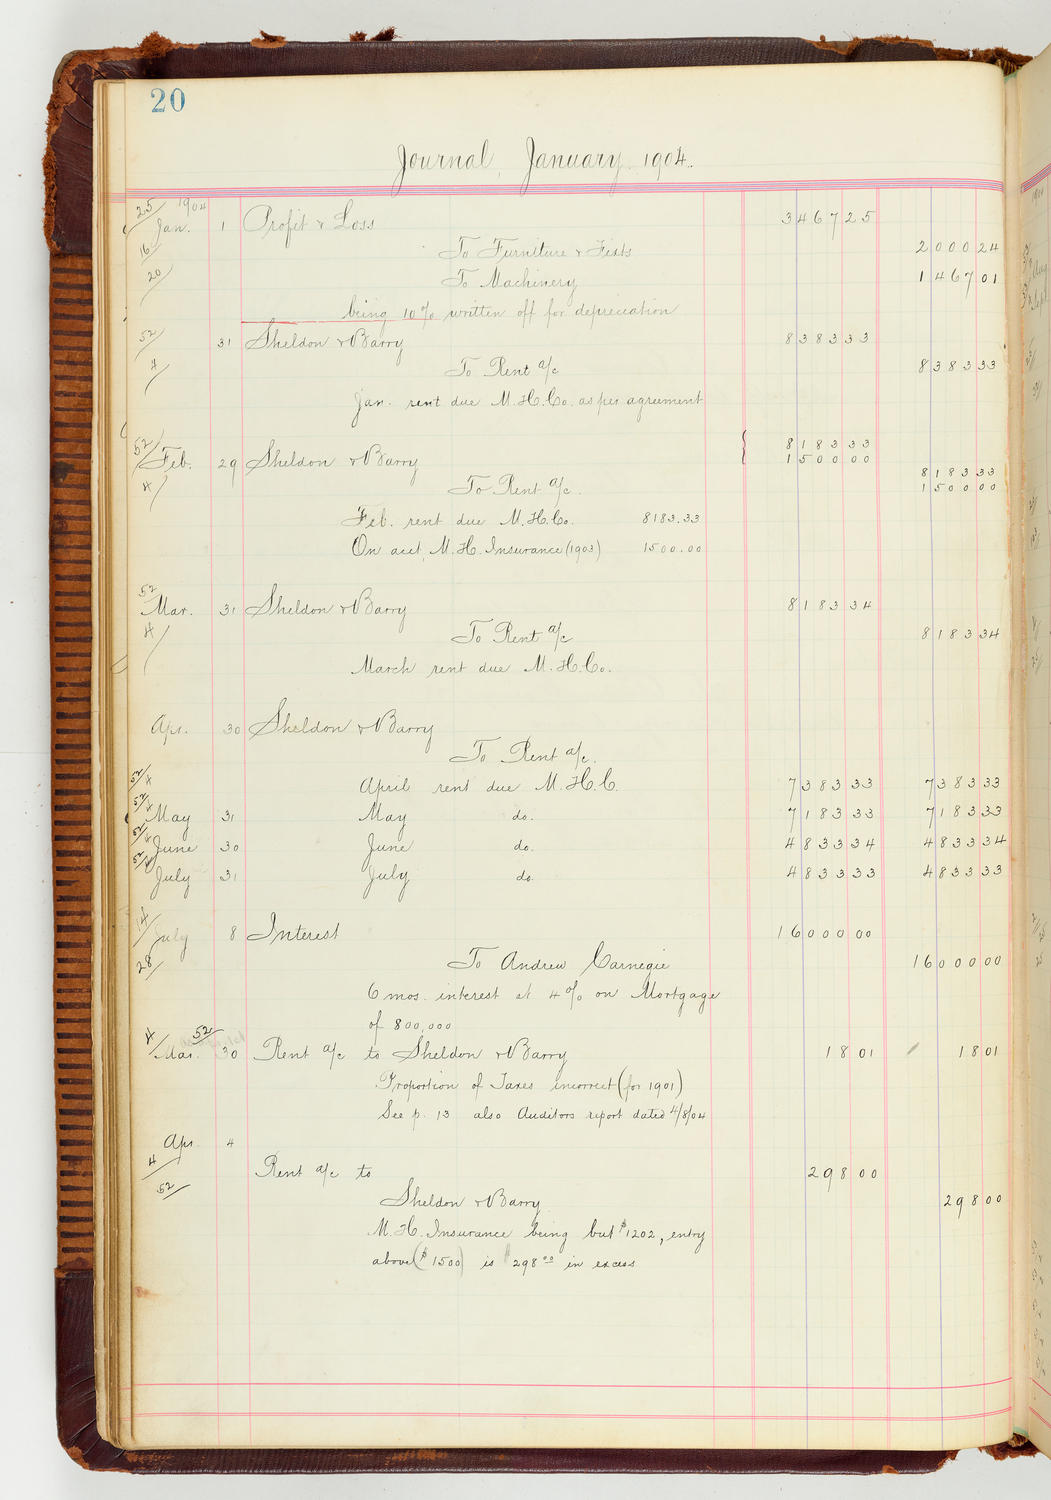 20
Journal, January 1904.
25/ 1904
Jan. 1 Profit & Loss 3467 25
16/ To Furniture & Fixts 2000 24
20/ To Machinery 1467 01
being 10% written off for depreciation
52/ 31 Sheldon & Barry 8383 33
4/ To Rent a/c 8383 33
Jan. rent due M.H.Co. as per agreement
52/ Feb. 29 Sheldon & Barry { 8183 33
1500 00
4/ To Rent a/c. 8183 33
1500 00
Feb. rent due M.H.Co. 8183.33
On acct. M.H. Insurance (1903) 1500.00
52
Mar. 31 Sheldon & Barry 8183 34
4/ To Rent a/c 8183 34
March rent due M.H.Co.
Apr. 30 Sheldon & Barry
To Rent a/c.
52/4 April rent due M.H.C. 7383 33 7383 33
52/4 May 31 May do. 7183 33 7183 33
52/4 June 30 June do. 4833 34 4833 34
52/4 July 31 July do. 4833 33 4833 33
14/ July 8 Interest 16000 00
28/ To Andrew Carnegie 16000 00
6 mos. interest at 4% on Mortgage
of 800,000
4/ 52/
Mar. 30 Rent a/c to Sheldon & Barry 18 01 18 01
Proportion of Taxes incorrect (for 1901)
See p. 13 also Auditors report dated 4/8/04
Apr 4
4/ Rent a/c to 298 00
52/ Sheldon & Barry 298 00
M.H. Insurance being but $1202, entry
above ($1500) is $298.00 in excess